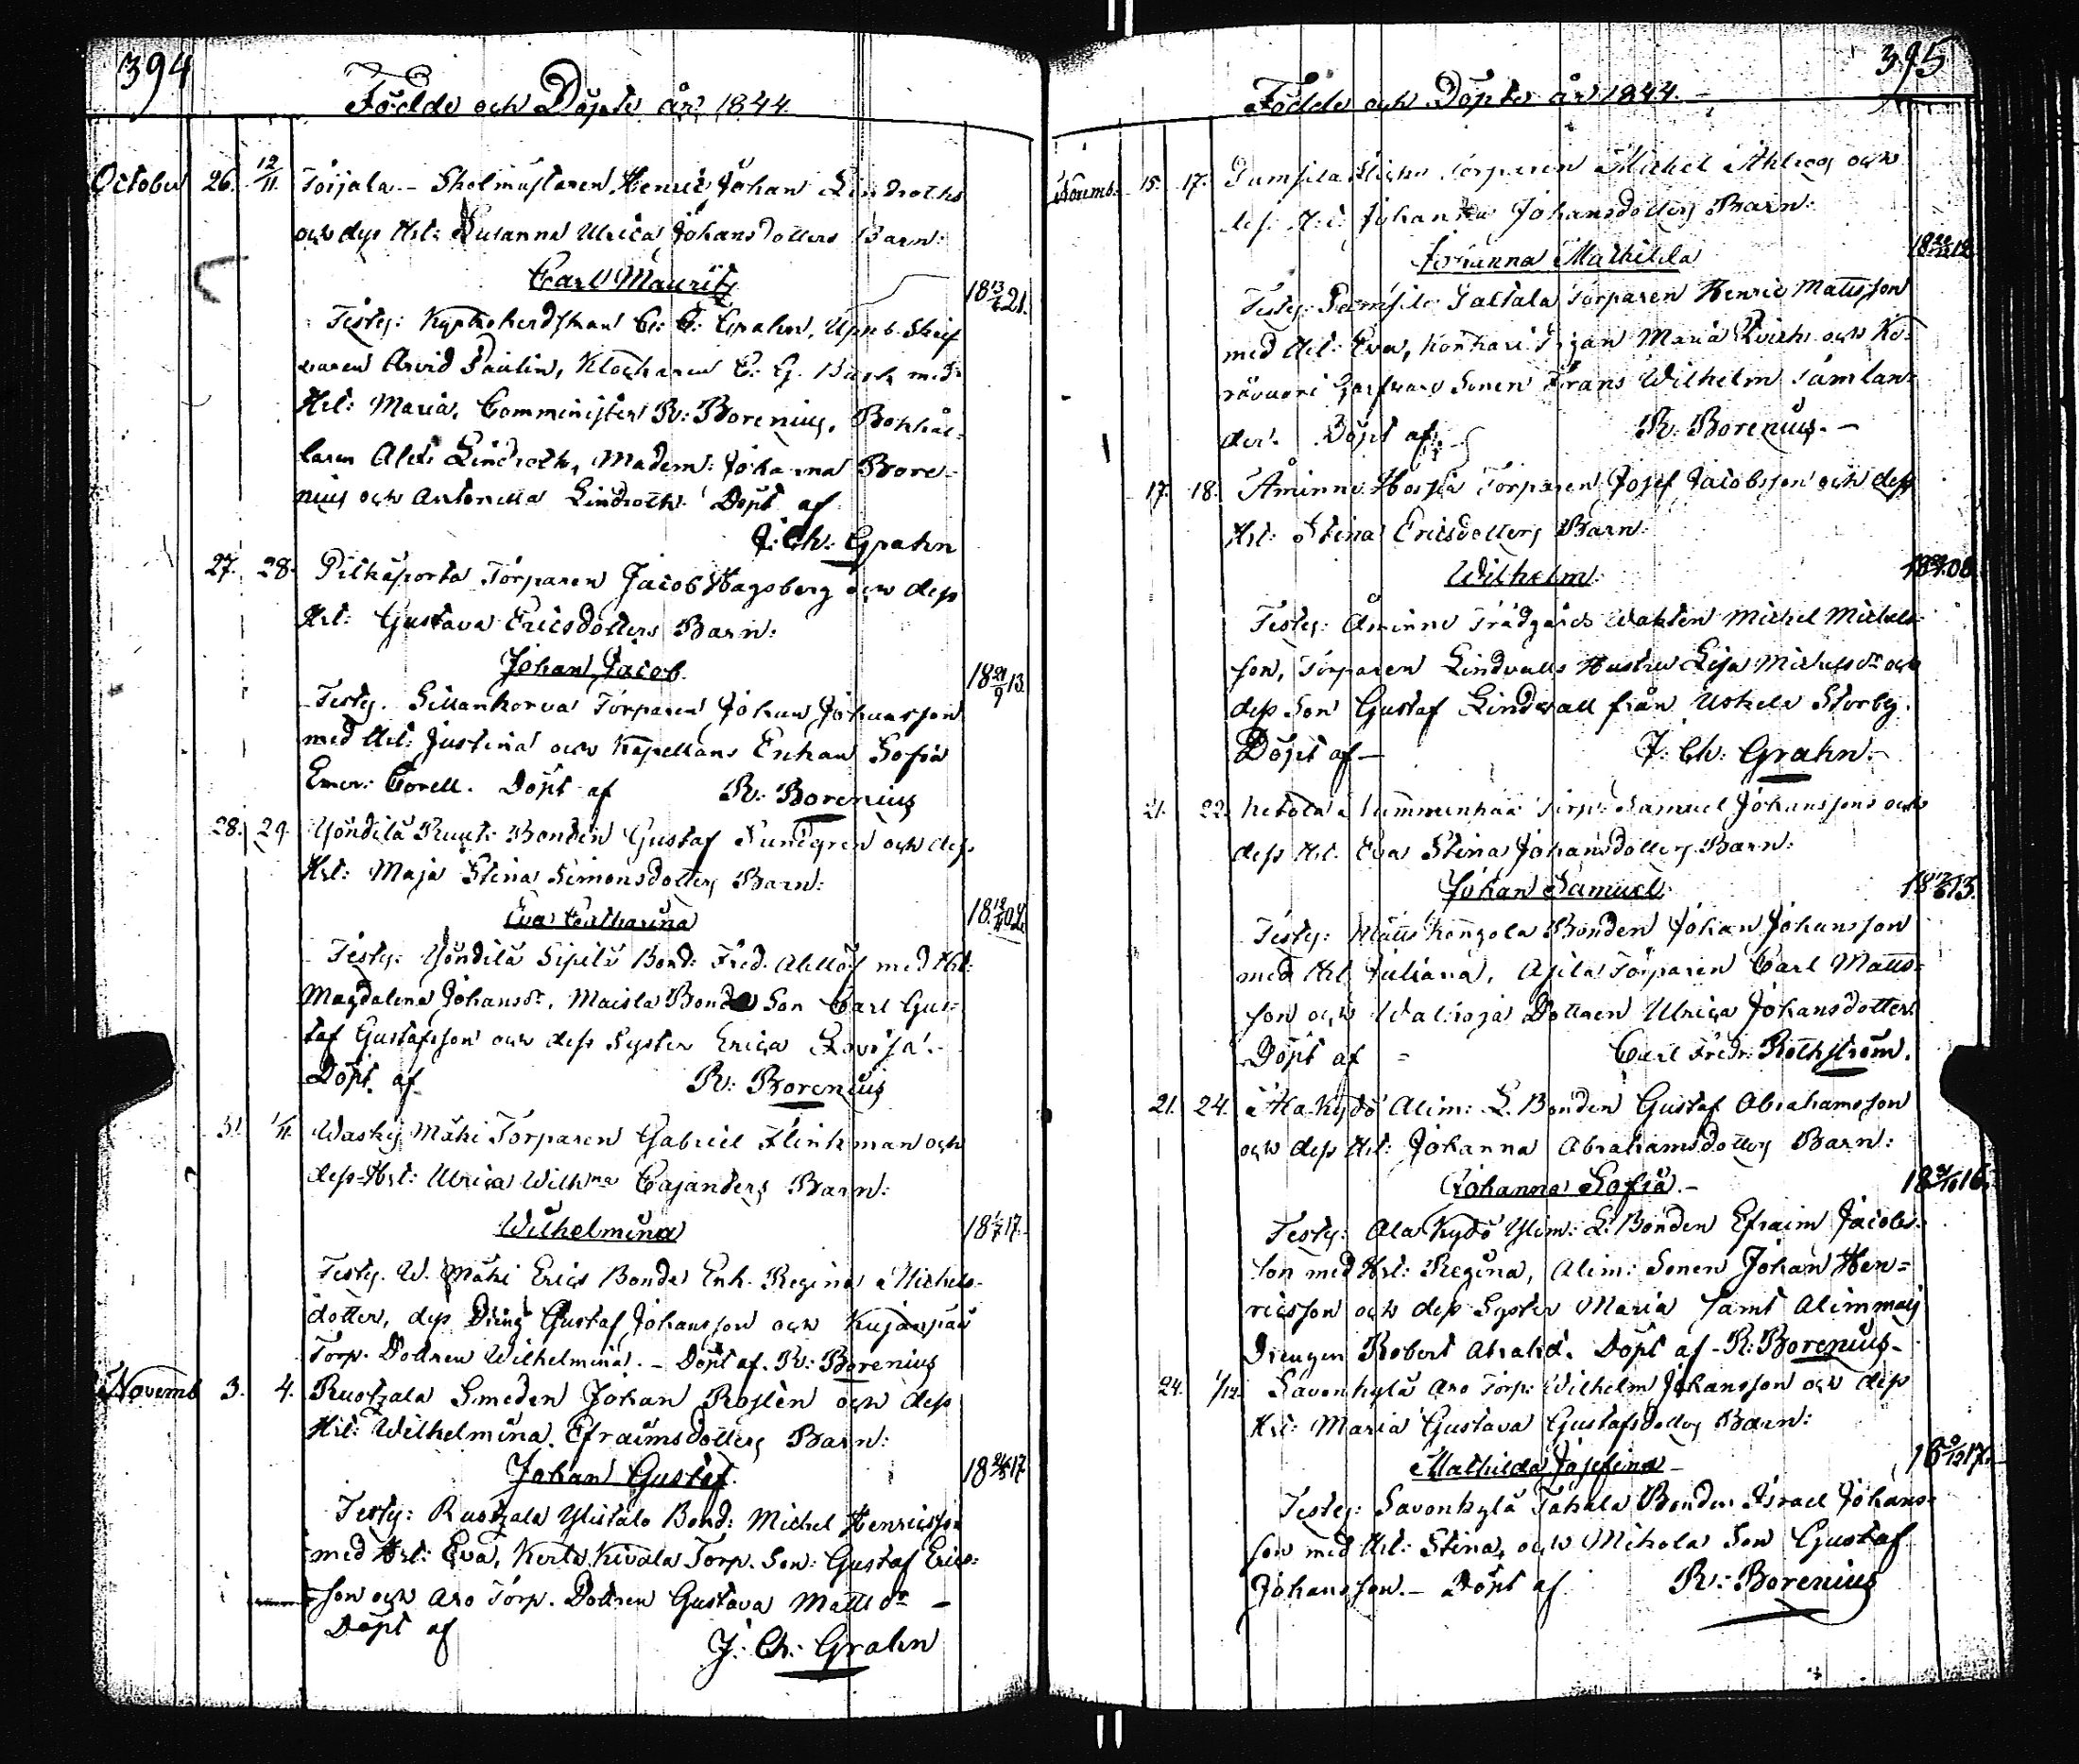 394
Födde och Döpte år 1844
October 26. 12/11. Toijala - Skolmästaren Henric Johan Lindroths
och dess Hst: Susanna Ulrica Johansdotters Barn:
Carl Mauritz
18 13/ 21.
Testes: Kyrkoherdskan C: G: Grahn, Uppb. Skrif
varen Arvid Paulin, Klockaren C. G. med
Hst: Maria, Comminister R: Borenius, Bokhål=
laren Alex Lindroth, Madem: Johanna Bore=
nius och Antonetta Lindroth. Döpt af
J: Ch: Grahn
27. 28. Pitkäporta Torparen Jacob Hagsberg och dess
Hst: Gustava Ericsdotters Barn:
Johan Jacob
18 21/9 13.
Testes. Sillankorva Torparen Johan Johansson
med Hst: Justina och Kapellans Enkan Sofia
Emer: Corell. Döpt af R: Borenius
28. 29. Yöndilä Bonden Gustaf Sundgren och dess
Hst: Maja Stina Simonsdotters Barn:
Eva Catharina
Testes: Yöndilä Sipilä Bond: Fred. med Hst:
Magdalena Johansdr, Maisla Bonde Son Carl Gus=
taf Gustafsson och dess Syster Erica Lovisa.
Döpt af R: Borenius
31. 1/11. Waskij Mäki Torparen Gabriel Flinkman och
dess Hst: Ulrica Wilhma Cajanders Barn:
Wilhelmina
17.
Testes. W. Mäki Erics Bonde Enk. Regina Michels=
dotter, dess Dreng Gustaf Johansson och Kujanpää
Torp. Dottren Wilhelmina. - Döpt af R: Borenius
Novemb 3. 4. Ruotzala Smeden Johan Roslén och dess
Hst: Wilhelmina Efraimsdotters Barn:
Johan Gustaf
17
Testes: Ruotzala Ylistalo Bond: Michel Henricsson
med Hst: Eva, Kerto Kivola Torp. Son: Gustaf Erics=
son och Aro Torp. Dottren Gustava Mattsdr -
Döpt af
J: Ch: Grahn
395
Födde och Döpte år 1844.
Novemb. 15. 17. Torparen Michel och
dess Johanna Johansdotters Barn:
Johanna Mathilda
Testes: Torparen Henric Mattsson
med Hst: Eva, Pigan Maria och
Sonen Frans Wilhelm Tamlan=
der. Döpt af R: Borenius. -
17. 18. Åminne Torparen Josef Jacobsson och dess
Hst: Stina Ericsdotters Barn:
Wilhelm.
08
Testes: Åminne Trädgårds Michel Michels=
son, Torparen Lindvalls Hustru Lisa Michelsdr och
dess Son Gustaf Lindvall från Uskela Storby.
Döpt af - J: Ch: Grahn. -
21. 22. Torp: Samuel Johanssons och
dess Hst. Eva Stina Johansdotters Barn:
Johan Samuel
13.
Testes: Bonden Johan Johansson
med Hst. Juliana, Torparen Carl Matts=
son och Dottren Ulrica Johansdotter.
Döpt af = Carl Fredr: Rothström.
21. 24. Alim: L. Bonden Gustaf Abrahamsson
och dess Hst: Johanna Abrahamsdotters Barn:
Johanna Sofia. -
16.
Testes: Ala Kydö Ylim: L. Bonden Efraim Jacobs=
son med Hst: Regina, Alim: Sonen Johan Hen=
ricsson och dess Syster Maria samt
Drengen Robert Abrahd. Döpt af - R: Borenius -
24. 1/12. Savonkylä Aro Torp: Wilhelm Johansson och dess
Hst: Maria Gustava Gustafsdotters Barn:
Mathilda Josefina -
17.
Testes: Savonkylä Tahala Bonden Israel Johans=
son med Hst: Stina, och Mikola Son Gustaf
Johansson. - Döpt af R: Borenius